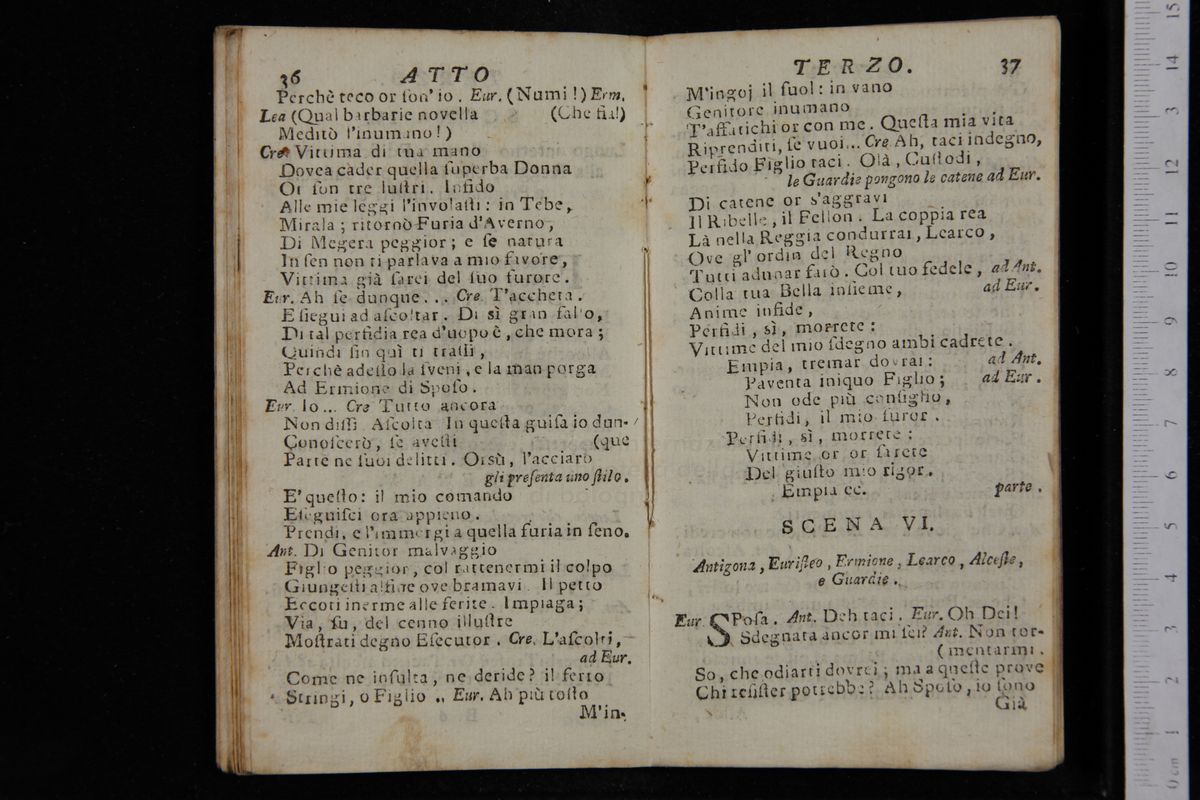 36 ATTO
Perchè teco or ſon' io. Eur. (Numi!) Erm.
Lea (Qual barbarie novella (Che fia!)
Meditò l'inumano!)
Cre Vittima di tua mano
Dovea cader quella ſuperba Donna
Or ſon tre luſtri. Infido
Alle mie leggi l'involaſti: in Tebe,
Mirala; ritornò Furia d'Averno,
Di Megera peggior; e ſe natura
In ſen non ti parlava a mio favore,
Vittima già ſarei del ſuo furore.
Eur. Ah ſe dunque... Cre T'accheta.
Eſiegui ad aſcoltar. Di sì gran fallo,
Di tal perfidia rea d'uopo è, che mora;
Quindi fin quì ti traſſi,
Perchè adeſſo la ſveni, e la man porga
Ad Ermione di Spoſo.
Eur Io... Cre Tutto ancora
Non diſſi Aſcolta In queſta guiſa io dun-
Conoſcerò, ſe aveſti (que
Parte ne ſuoi delitti. Orsù, l'acciaro
gli preſenta uno ſtilo.
E' queſto: il mio comando
Eſeguiſci ora appieno.
Prendi, e l'immergi a quella furia in ſeno.
Ant. Di Genitor malvaggio
Figlio peggior, col rattenermi il colpo
Giungeſti alfine ove bramavi. Il petto
Eccoti inerme alle ferite. Impiaga;
Via, ſu, del cenno illuſtre
Moſtrati degno Eſecutor. Cre. L'aſcolti,
ad Eur.
Come ne inſulta, ne deride? il ferro
Stringi, o Figlio .. Eur. Ah più toſto
M'in-
TERZO. 37
M'ingoj il ſuol: in vano
Genitore inumano
T'affatichi or con me. Queſta mia vita
Riprenditi, ſe vuoi... Cre Ah, taci indegno,
Perfido Figlio taci. Olà, Cuſtodi,
le Guardie pongono le catene ad Eur.
Di catene or s'aggravi
Il Ribelle, il Fellon. La coppia rea
Là nella Reggia condurrai, Learco,
Ove gl' ordin del Regno
Tutti adunar farò. Col tuo fedele, ad Ant.
Colla tua Bella inſieme, ad Eur.
Anime infide,
Perfidi, sì, morrete:
Vittime del mio ſdegno ambi cadrete.
Empia, tremar dovrai: ad Ant.
Paventa iniquo Figlio; ad Eur.
Non ode più conſiglio,
Perfidi, il mio furor.
Perfidi, sì, morrete:
Vittime or or ſarete
Del giuſto mio rigor.
Empia ec. parte.
SCENA VI.
Antigona, Euriſteo, Ermione, Learco, Alceſte,
e Guardie.
Eur SPoſa. Ant. Deh taci. Eur. Oh Dei!
Sdegnata ancor mi ſei? Ant. Non tor-
(mentarmi.
So, che odiarti dovrei; ma a queſte prove
Chi reſiſter potrebbe? Ah Spoſo, io ſono
Già